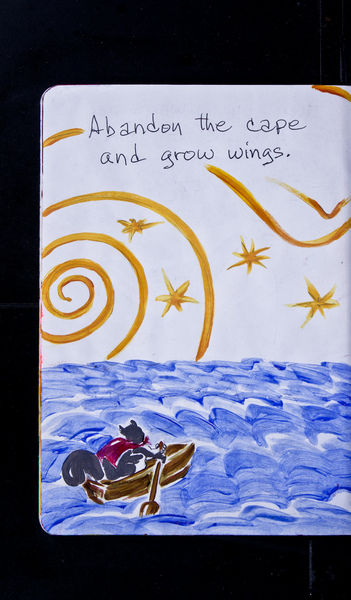 Abandon the cape
and grow wings.